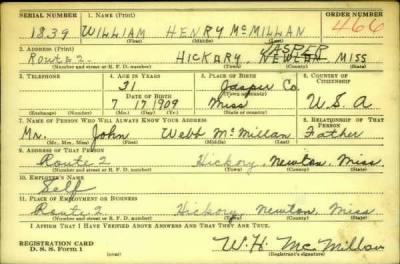 SERIAL NUMBER 1. NAME (Print) ORDER NUMBER
1839 WILLIAM HENRY McMILLAN 466
(First) (Middle) (Last)
2. ADDRESS (Print) JASPER
Route 2. HICKORY, NEWTON, MISS
(Number and street or R. F. D. number) (Town) (County) (State)
3. TELEPHONE 4. AGE IN YEARS 5. PLACE OF BIRTH 6. COUNTRY OF CITIZENSHIP
31 Jasper Co.
DATE OF BIRTH
7 17 1909 Miss U.S.A
(Exchange) (Number) (Mo.) (Day) (Yr.) (State or country)
7. NAME OF PERSON WHO WILL ALWAYS KNOW YOUR ADDRESS 8. RELATIONSHIP OF THAT PERSON
Mr. John Webb McMillan Father
(Mr., Mrs., Miss) (First) (Middle) (Last)
9. ADDRESS OF THAT PERSON
Route 2 Hickory, Newton, Miss.
(Number and street or R. F. D. number) (Town) (County) (State)
10. EMPLOYER'S NAME
Self
11. PLACE OF EMPLOYMENT OR BUSINESS
Route 2 Hickory, Newton, Miss
(Number and street or R. F. D. number) (Town) (County) (State)
I AFFIRM THAT I HAVE VERIFIED ABOVE ANSWERS AND THAT THEY ARE TRUE.
REGISTRATION CARD
D. S. S. Form 1 W.H. McMillan
(Registrant's signature)